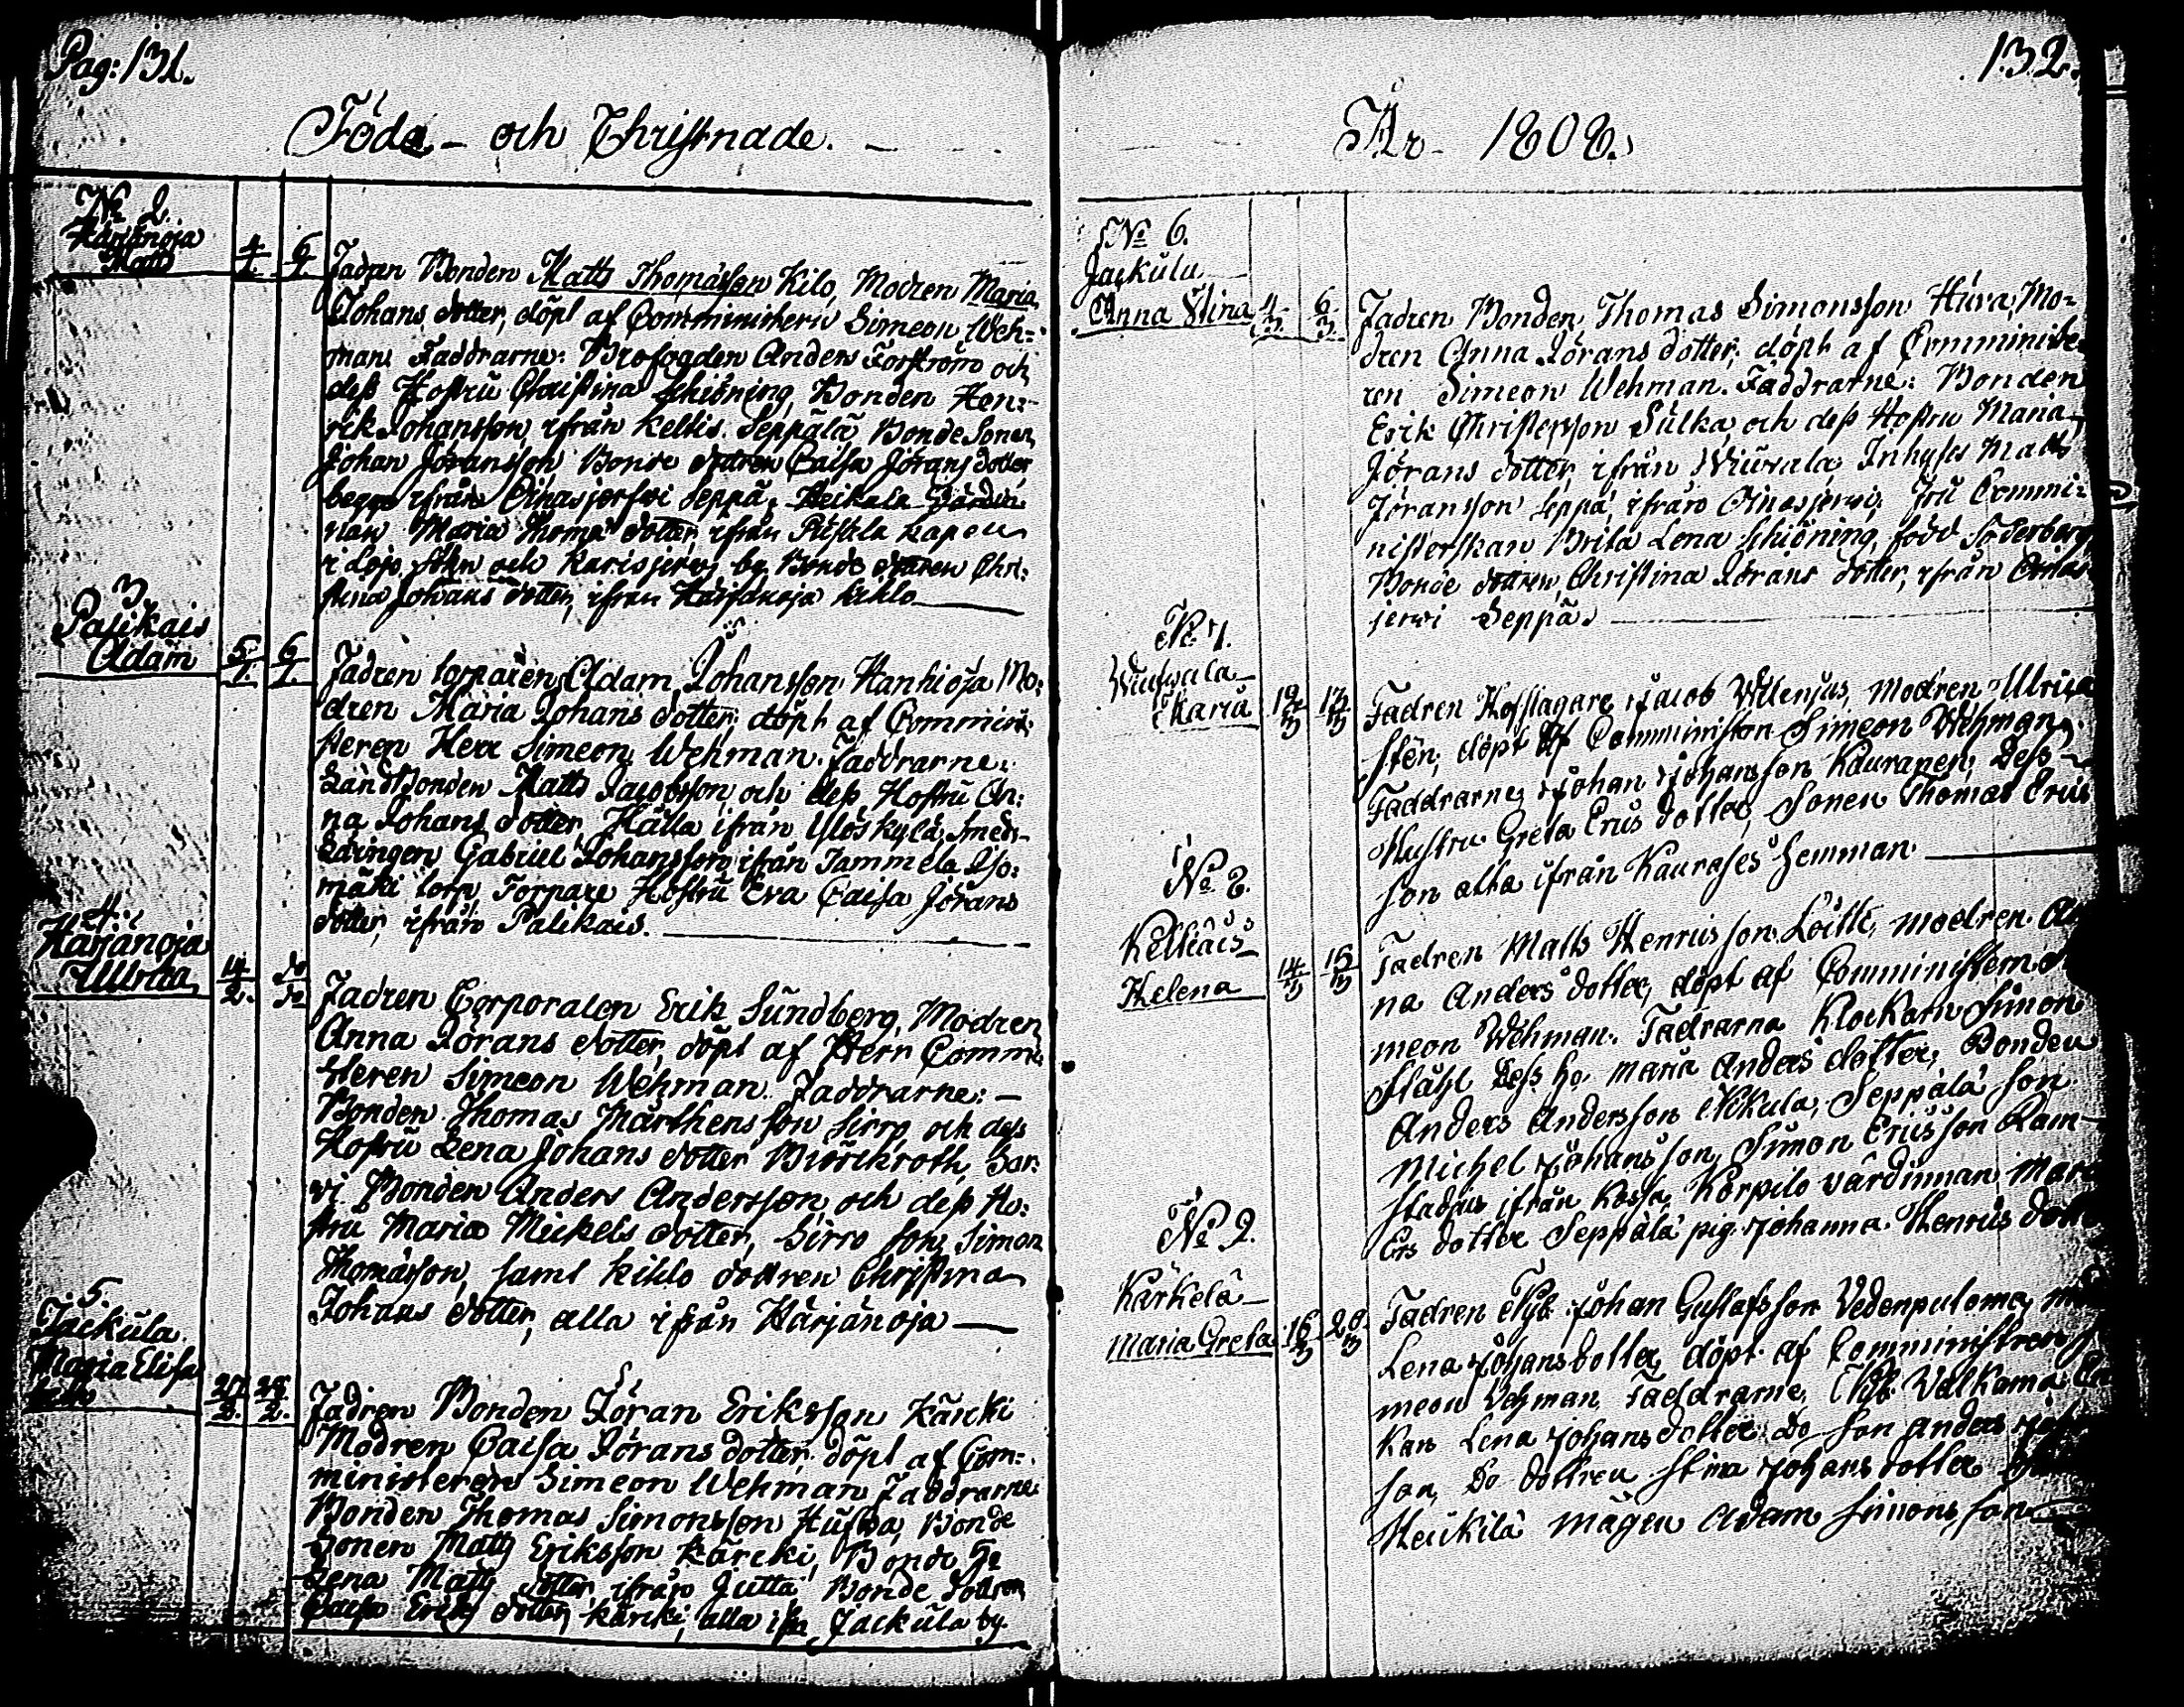 Pag: 131.
Föda - och Christnade.
No 2.
Härjänoja
Matts
4/1. 6/1.
Fadren Bonden Matts Thomasson Kilo, Modren Maria
Johans dotter, döpt af Comministern Simeon Weh=
man. Faddrarne: Brofogden Anders Forström och
dess Hostru Christina Schiöning, Bonden Hen=
rik Johansson, ifrån Keltis Seppälä, Bonde Sonen
Johan Jöransson, Bonde dottren Caisa Jörans dotter
begge ifrån Oinasjerfwi Seppä,
nan Maria Thomas dotter, ifrån
i Lojo Sokn och Karisjerwj by. Bonde dottren Chri=
stina Johans dotter, ifrån Härjänoja Kiklo
3
Palikais
Adam
5/1. 6/1.
Fadren torparen Adam Johansson Hankioja Mo=
dren Maria Johans dotter; döpt af Commini=
steren Herr Simeon Wehman. Faddrarne:
Landbonden Matts Jacobsson och dess Hostru An=
na Johans dotter Hälla ifrån Ylöskylä, Smeds-
Läringen Gabriel Johansson ifrån Tammela Iso=
mäki torp, Torpare Hostru Eva Caisa Jörans
dotter, ifrån Palikais.
4.
Härjänoja
Ulrica
14/2. do/do
Fadren Corporalen Erik Sundberg, Modren
Anna Jörans dotter, döpt af Herr Commi=
steren Simeon Wehman. Faddrarne: -
Bonden Thomas Mårthensson Sirro, och dess
Hostru Lena Johans dotter Biörckroth, Sar=
vi Bonden Anders Andersson och dess Ho=
stru Maria Mickels dotter, Sirro son, Simon
Thomasson, samt Kiklo dottren Christina
Johans dotter, alla ifrån Härjänoja
5.
Jackula
Maria Elisa
beth
27/2. 28/2.
Fadren Bonden Jöran Eriksson Kärcki
Modren Caisa Jörans dotter döpt af Com=
ministeren Simeon Wehman Faddrarne:
Bonden Thomas Simonsson Huhva, Bonde
Sonen Matts Eriksson Kärcki, Bonde
Lena Matts dotter, ifrån Jutta Bonde dottren
Caisa Eriks dotter, Kärcki, alla ifrå Jackula by.
132.
År 1808.
No 6.
Jackula
Anna Stina
4/3. 6/3.
Fadren Bonden, Thomas Simonsson Huva, Mo=
dren Anna Jörans dotter; döpt af Comministe=
ren Simeon Wehman. Faddrarne: Bonden
Erik Christersson Sulka, och dess Hostru Maria
Jörans dotter, ifrån Wiuvala, Inhyses Matts
Jöransson Seppä, ifrån Oinasjerwi, Fru Commi=
nisterskan Brita Lena Schiöning, född Söderberg
Bonde dottren, Christina Jörans dotter, ifrån Oinas
jerwi Seppä.
No 7.
Wiuvala
Maria
12/3 13/3
Fadren Hofslagare Jacob Wilenius, modren Ulrica
Sten, döpt af Comministren Simeon Wehman.
Faddrarne, Johan Johansson Kauranen, Dess
Hustru Greta Erics dotter, Sonen Thomas Erics
son alla ifrån Kaurases hemman.
No 8.
Kelkiäis
Helena
14/3 15/3
Fadren Matts Henricsson Loitti, modren An
na Anders dotter, döpt af Comministern Si
meon Wehman. Fadrarna Klockarn Simon
Ståhl Dess ho. Maria Anders dotter, Bonden
Anders Andersson Nikula, Seppälä son
Michel Johansson, Simon Ericsson Ram-
stadius ifrån Kossa, Korpilo värdinnan
Ers dotter Seppälä pig. Johanna Henrics dott
No 9.
Kärkelä
Maria Greta
16/3 20/3
Fadren Nyb. Johan Gustafsson Vedenpuloma,
Lena Johans dotter, döpt af Comministren
meon Wehman, Faddrarne, Nyb. Walkama
Kan Lena Johans dotter Do son Anders
son, Do dottren Stina Johans dotter
Heikilä mågen Adam Simons son